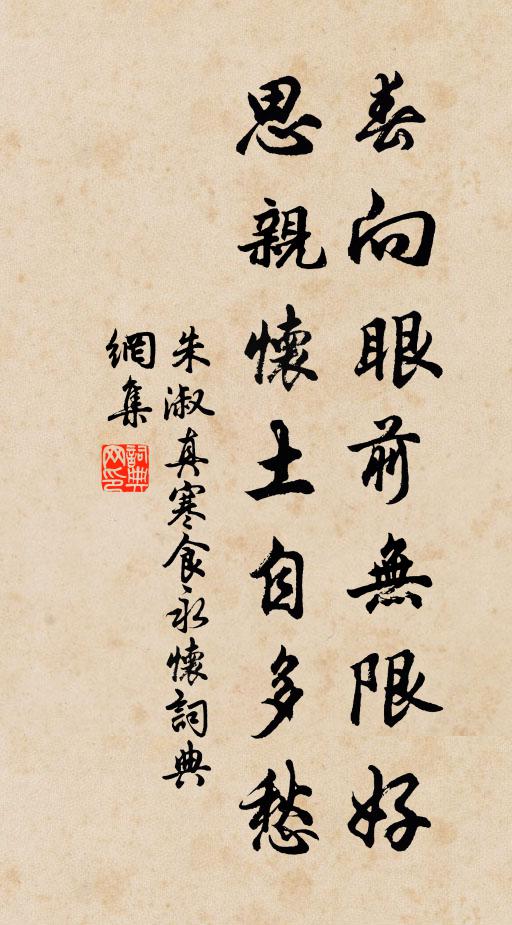 春向眼前無限好
思親懷土自多愁
朱淑真寒食永懷詞典
網集
詞典網印